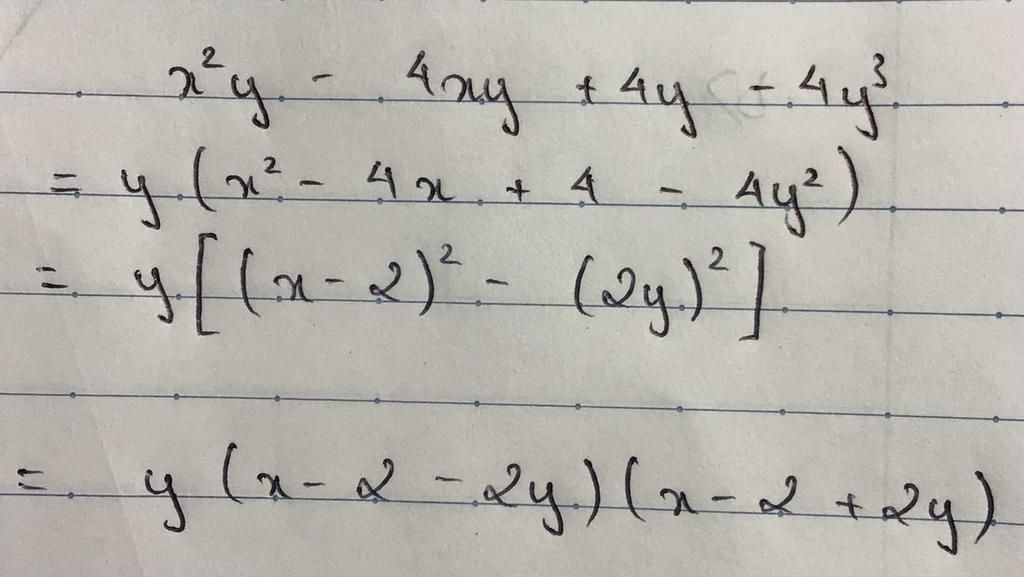 x²y - 4xy + 4y - 4y³
= y (x² - 4x + 4 - 4y²)
= y [(x - 2)² - (2y)²]
= y (x - 2 - 2y) (x - 2 + 2y)